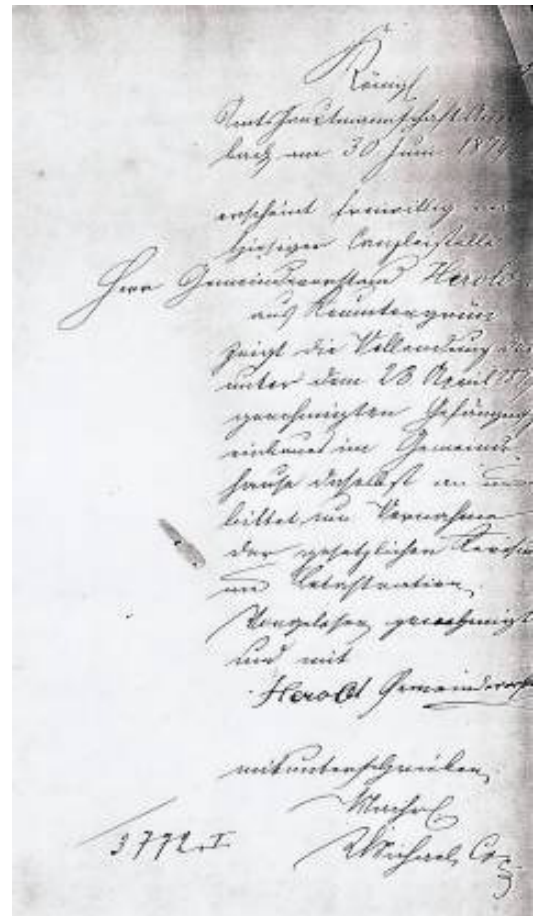 Königl
Amtshauptmannschaft Auer
bach am 30 Juni 1879
erscheint freiwillig an
hiesiger Canzleistelle
Herr Gemeindevorstand Herold
aus
zeigt die Vollendung des
unter dem 23 April
genehmigten Gefängniß
einbaues im Gemeinde
hause daselbst an und
bittet um Vornahme
der gesetzlichen Revision
und Catastration.
Vorgelesen, genehmigt
und mit
Herold Gemeindevorst
mitunterschrieben.
3772. I.